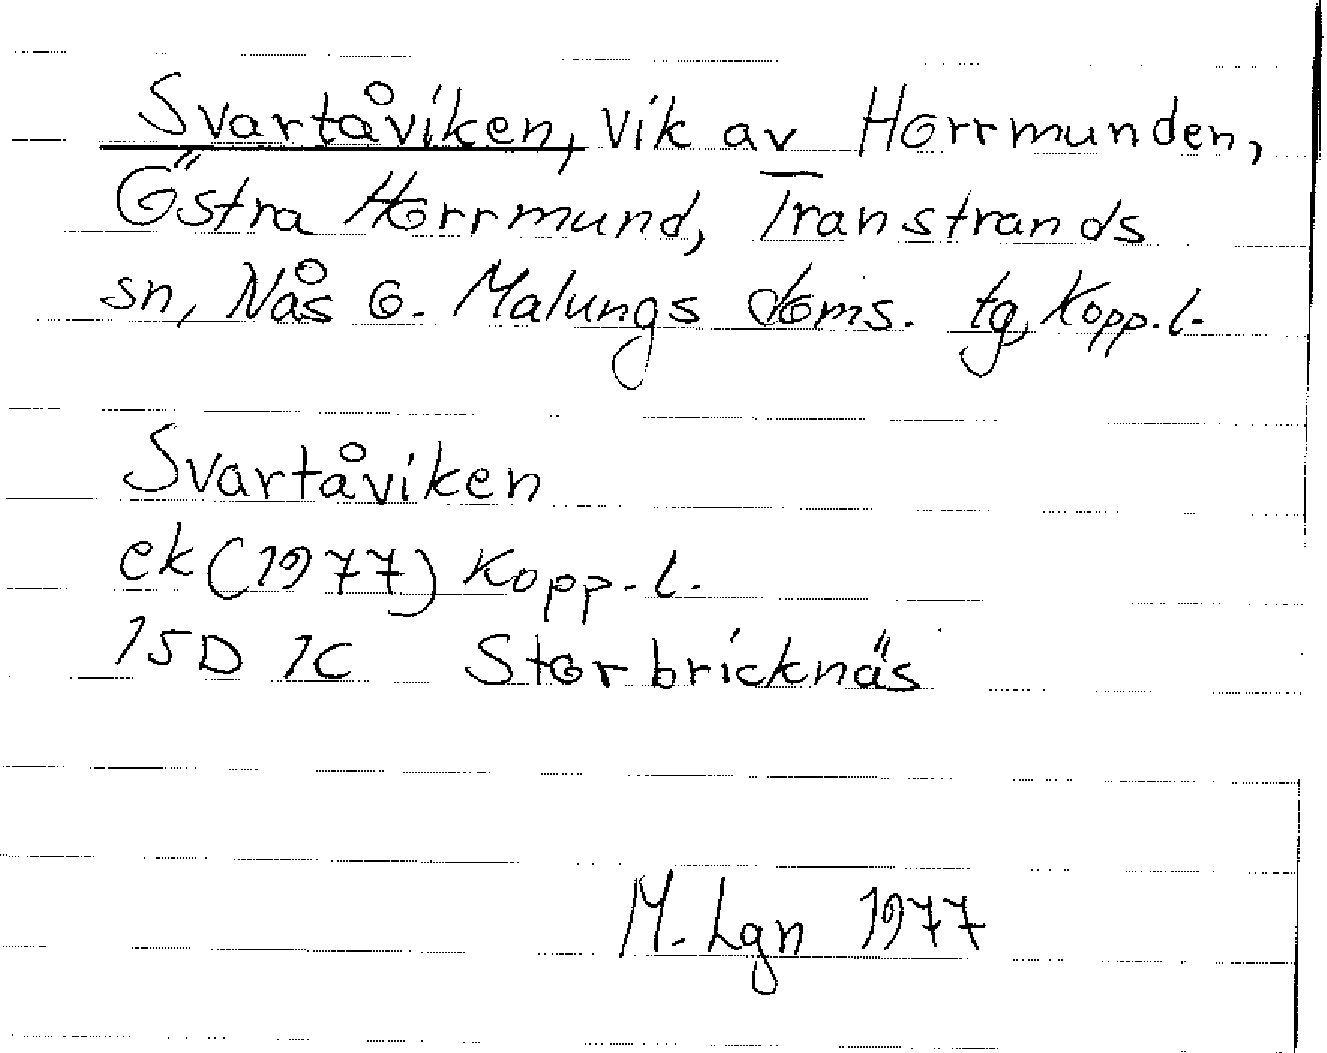 Svartåviken, vik av Horrmunden,
Östra Horrmund, Transtrands
sn, Nås o. Malungs doms. tg, Kopp. l.
Svartåviken
ek (1977) Kopp. l.
15D 1C Storbricknäs
M. Lgn 1977